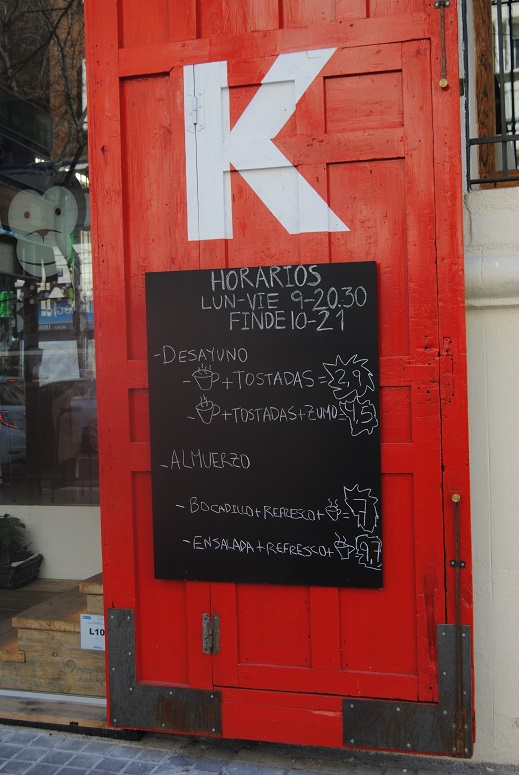 K
HORARIOS
LUN-VIE 9-20.30
FINDE 10-21
-DESAYUNO
- +TOSTADAS=2,9
- +TOSTADAS+ZUMO 4,5
-ALMUERZO
-BOCADILLO+REFRESCO+ =7
-ENSALADA+REFRESCO+ 9,7
L10